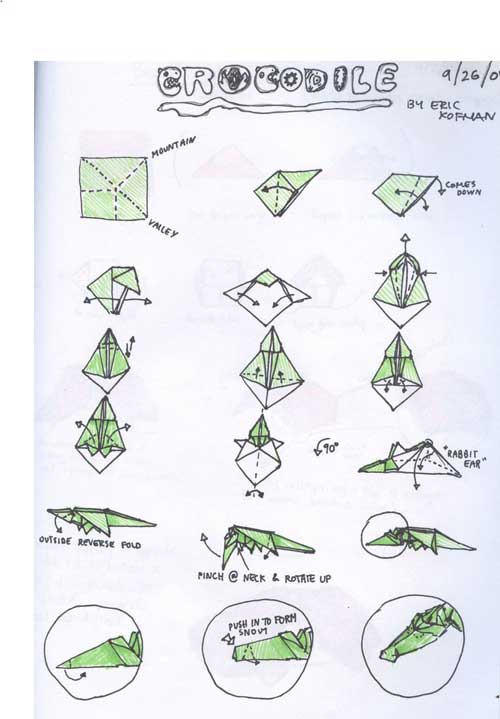 CROCODILE
9/26/0
BY ERIC
KOFMAN
MOUNTAIN
VALLEY
COMES
DOWN
90°
"RABBIT
EAR"
OUTSIDE REVERSE FOLD
PINCH @ NECK & ROTATE UP
PUSH IN TO FORM
SNOUT